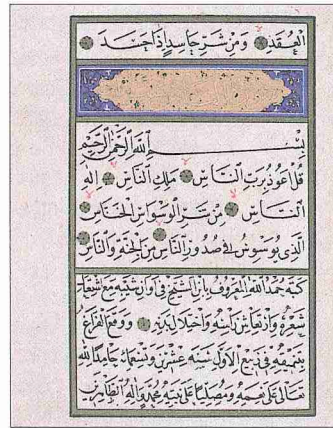 الْعُقَدِ وَمِنْ شَرِّ حَاسِدٍ إِذَا حَسَدَ
بِسْمِ اللهِ الرَّحْمٰنِ الرَّحِيمِ
قُلْ أَعُوذُ بِرَبِّ النَّاسِ مَلِكِ النَّاسِ إِلٰهِ
النَّاسِ مِنْ شَرِّ الْوَسْوَاسِ الْخَنَّاسِ
الَّذِي يُوَسْوِسُ فِي صُدُورِ النَّاسِ مِنَ الْجِنَّةِ وَالنَّاسِ
كتبه حمد الله المعروف بابن الشيخ في اوان شيبه مع اشتعال
شعره وارتعاش راسه واختلال بدنه ووقع الفراغ
بتنميقه في ربيع الاول سنة عشرين وتسعمائة حامدا لله
تعالى على نعمه ومصليا على نبيه محمد واله الطاهرين